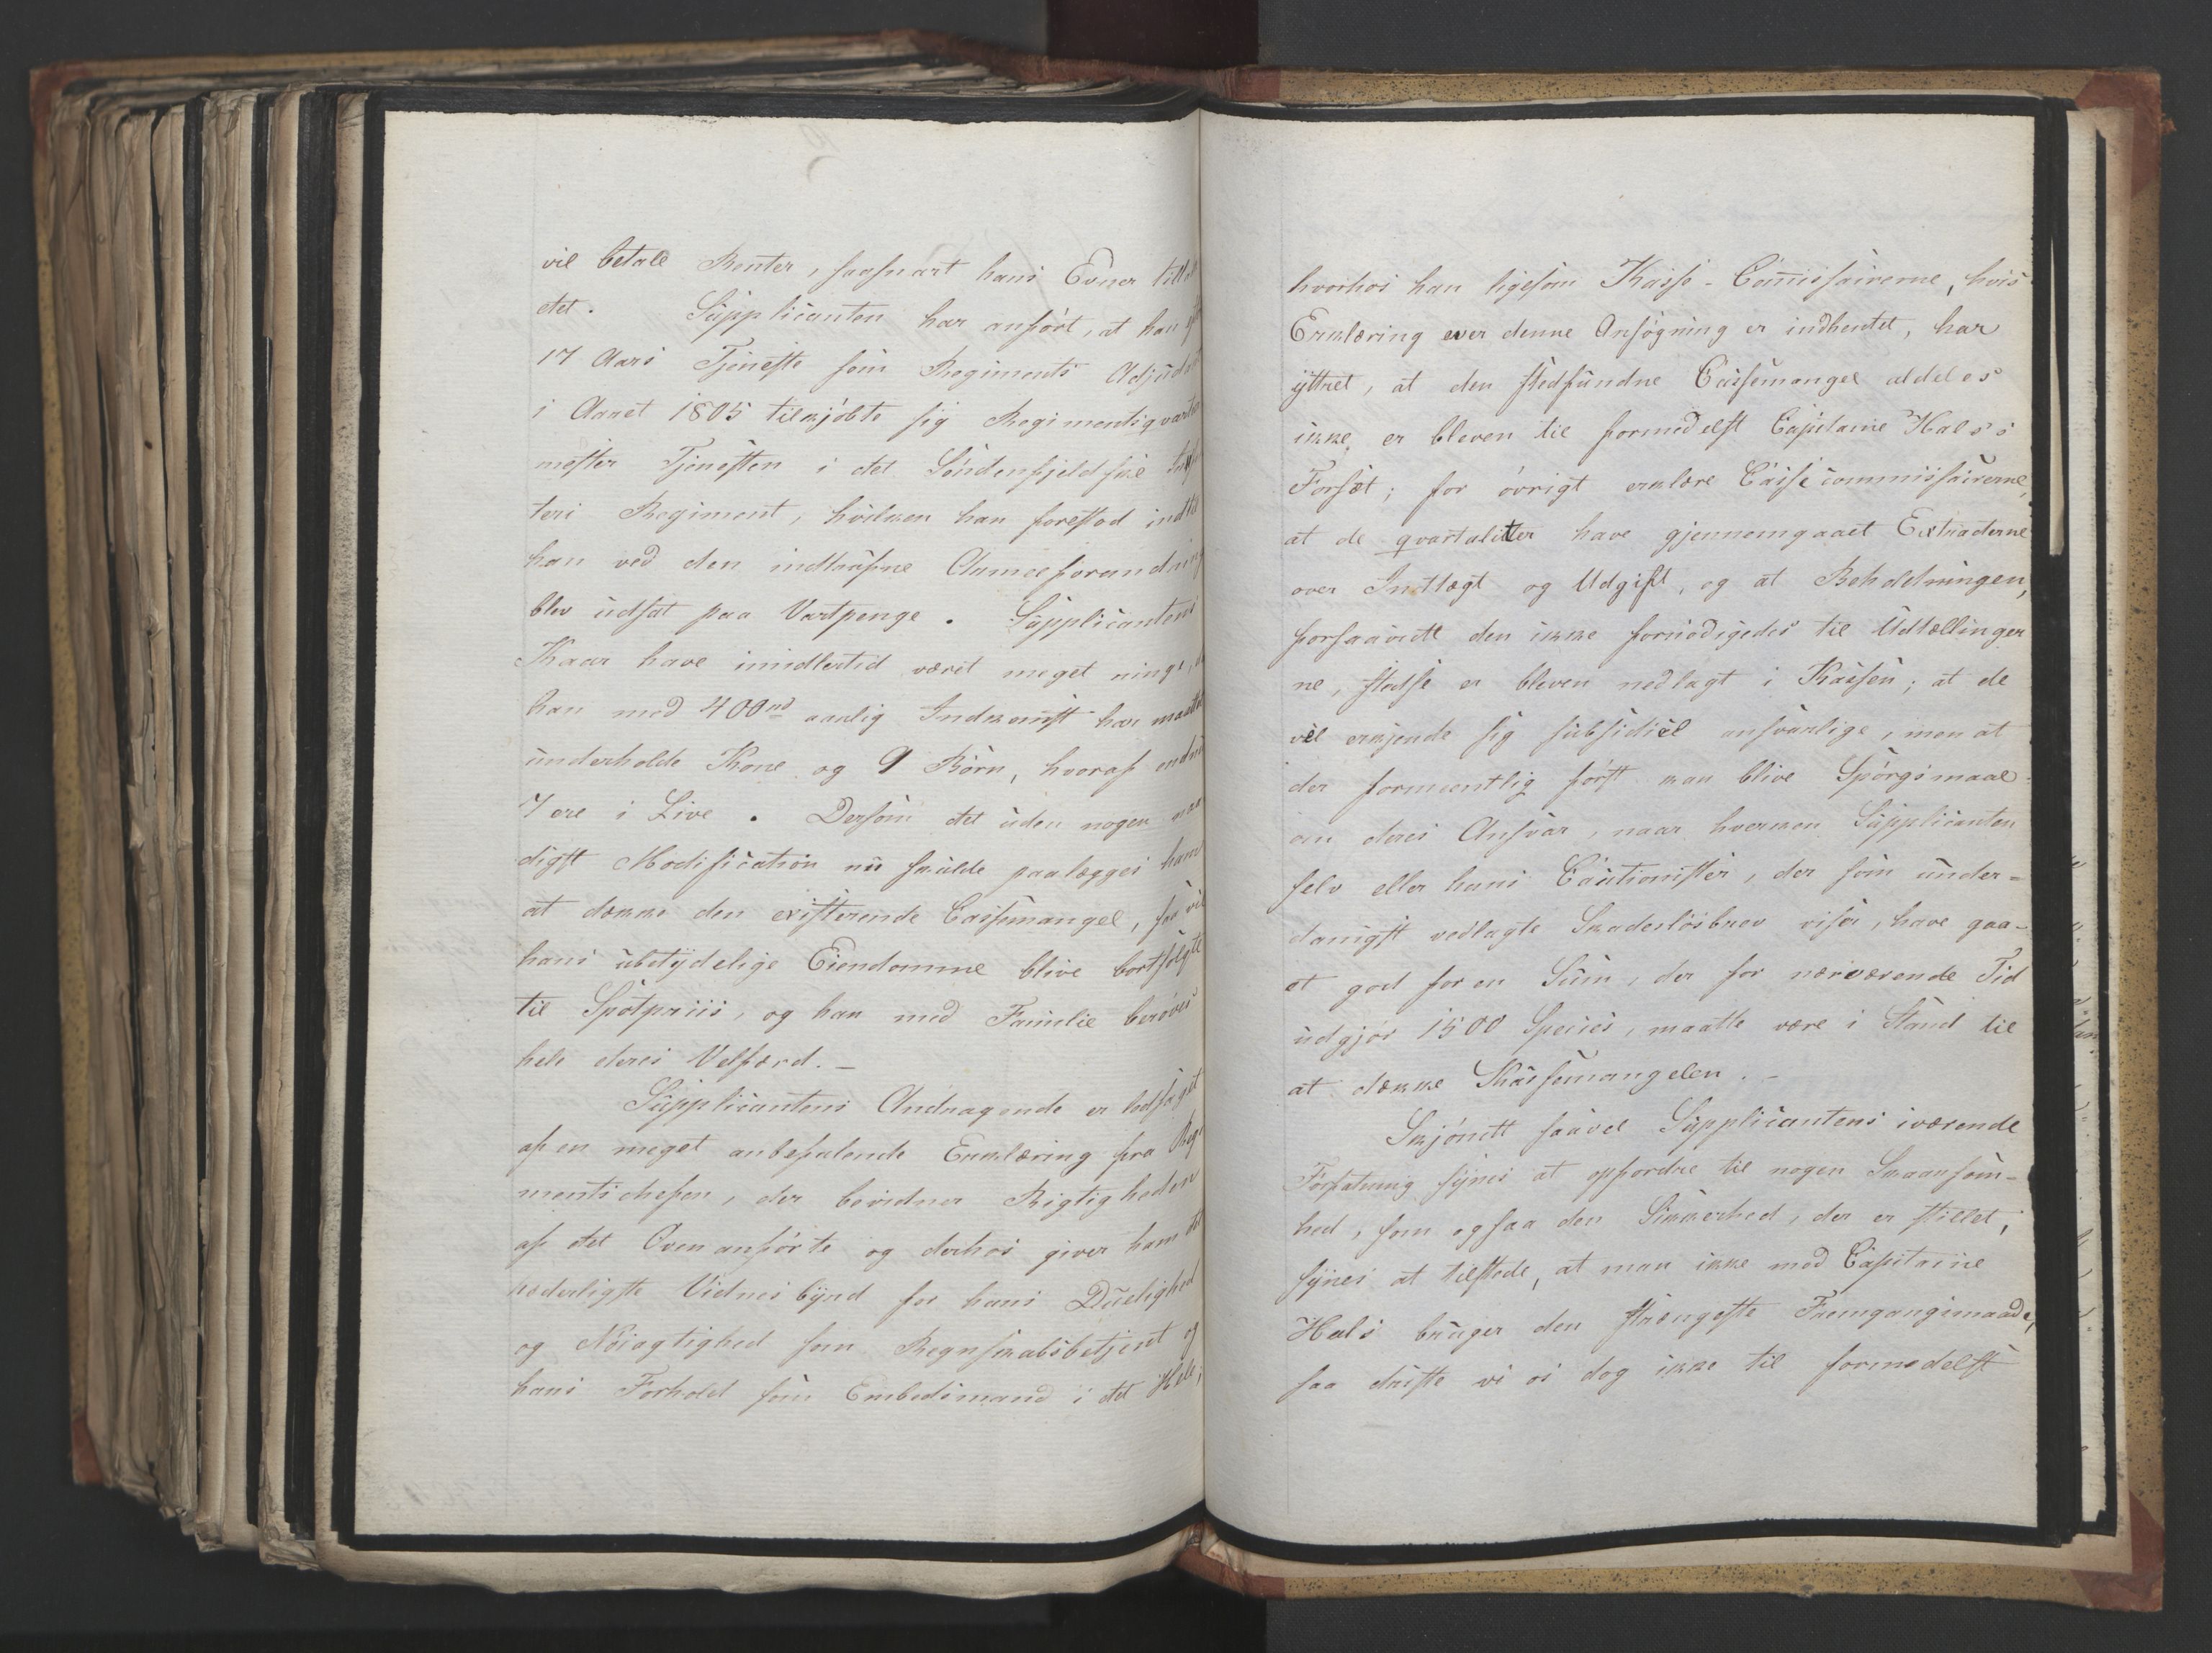 vil betale Renter, saasnart hans Evner tillade
det. Supplicanten har anført, at han efter
17 Aars Tjeneste som Regiments Adjudant
i Aaret 1805 tilkjøbte sig Regimentsqvarteer
mester Tjenesten i det Søndenfjeldske Infan
teri Regiment, hvilken han forestod indtil
han ved den indtrufne Armeeforandring
blev udsat paa Vartpenge. Supplicantens
Kaar have imidlertid været meget ringe, da
han med 400 rd aarlig Indkomst har maattet
underholde Kone og 9 Børn, hvoraf endnu
7 ere i Live. Dersom det uden nogen naa
digst Modification nu skulde paalægges ham
at dække den existerende Cassemangel, saa vil
hans ubetydelige Eiendomme blive bortsolgte
til Spotpriis, og han med Familie berøves
hele deres Velfærd. _
Supplicantens Andragende er ledsaget
af en meget anbefalende Erklæring fra Regi
mentschefen, der bevidner Rigtigheden
af det Ovenanførte og derhos giver ham det
hæderligste Vidnesbyrd for hans Duelighed
og Nöiagtighed som Regnskabsbetjent og
hans Forhold som Embedsmand i det Hele;
hvorhos han ligesom Kasse-Com̄issairerne, hvis
Erklæring over denne Ansøgning er indhentet, har
yttret, at den stedfundne Cassemangel aldeles
ikke er bleven til formedelst Capitaine Hals's
Forsæt; for øvrigt erklære Cassecommissairerne,
at de qvartaliter have gjennemgaaet Extracterne
over Indtægt og Udgift, og at Beholdningen,
forsaavidt den ikke fornødigedes til Udtællinger
ne, stedse er bleven nedlagt i Kassen; at de
vel erkjende sig subsidiel ansvarlige, men at
der formeentlig først kan blive Spørgsmaal
om deres Ansvar, naar hverken Supplicanten
selv eller hans Cautionister, der som under=
danigst vedlagte Skadesløsbrev viser, have gaa-
et god for en Sum, der for nærværende Tid
udgjør 1500 Species, maatte være i Stand til
at dække Kassemangelen. _
Skjøndt saavel Supplicantens iværende
Forfatning synes at opfordre til nogen Skaansom-
hed, som ogsaa den Sikkerhed, der er stillet,
synes at tilstede, at man ikke mod Capitaine
Hals bruger den strængeste Fremgangsmaade,
saa driste vi os dog ikke til formedelst